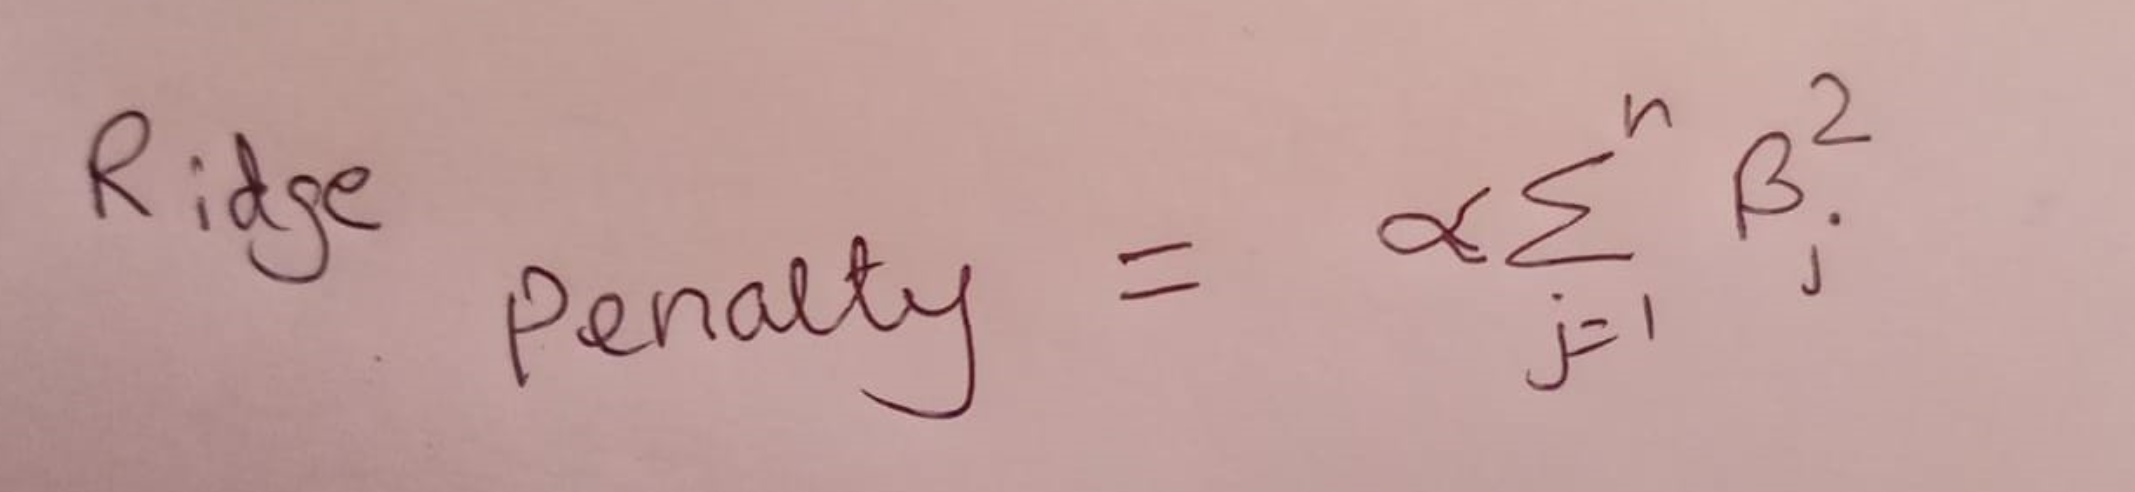 Ridge Penalty = α∑ⁿⱼ₌₁ βⱼ²